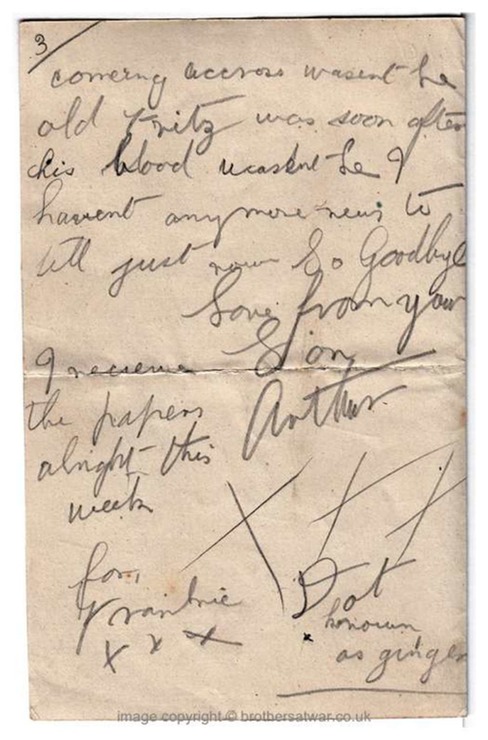 3
comerng accross wasent he
old Fritz was soon after
his blood wasent he I
havent any more news to
tell just now So Goodbye
Love from your
Son
Arthur
I recieve
the papers
alright this
week
X X X
for,
Frankie
X X X
Dot
known
as ginger
image copyright © brothersatwar.co.uk